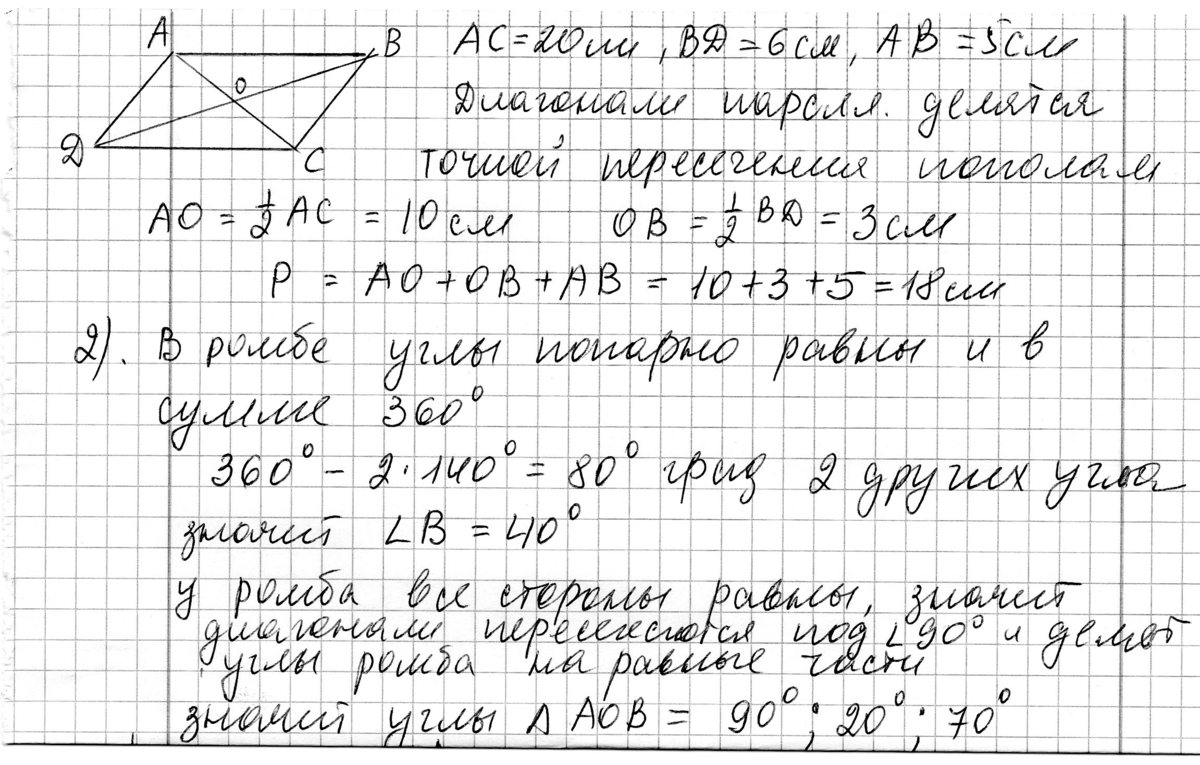 A B AC=20см, BD=6см, AB=5см
O
Диагонали паралл. делятся
D C точкой пересечения пополам
AO = ½ AC = 10см OB = ½ BD = 3см
P = AO+OB+AB = 10+3+5=18см
2). В ромбе углы попарно равны и в
сумме 360°
360° - 2·140° = 80° град 2 других угла
значит ∠B = 40°
у ромба все стороны равны, значит
диагонали пересекаются под ∠90° и делят
углы ромба на равные части
значит углы Δ AOB = 90°; 20°; 70°